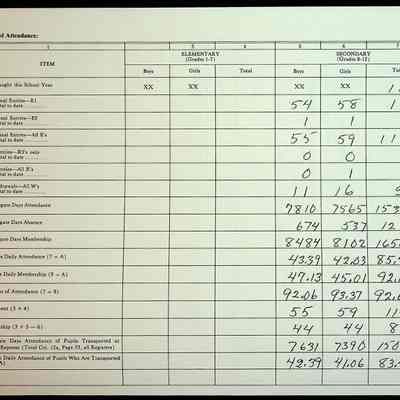 of Attendance:
1 3 4 5 6 7
ITEM
ELEMENTARY (Grades 1-7) SECONDARY (Grades 8-12)
Boys Girls Total Boys Girls
this School Year XX XX XX XX
Entries—R1
to date 54 58
Entries—R2
to date 1 1
Entries—All R's
to date 55 59 11
R3's only
to date 0 0
All R's
to date 0 1
All W's
to date 11 16
Days Attendance 7810 7565 153
Days Absence 674 537 12
Days Membership 8484 8102 165
Daily Attendance (7 ÷ A) 43.39 42.03 85.
Daily Membership (9 ÷ A) 47.13 45.01 92.
of Attendance (7 ÷ 9) 92.06 93.37 92.
(3 + 4) 55 59 11
(3 + 5 — 6) 44 44 8
Days Attendance of Pupils Transported at
Expense (Total Col. 12a, Page 33, all Registers) 7631 7390 150
Daily Attendance of Pupils Who Are Transported
A) 42.39 41.06 83.